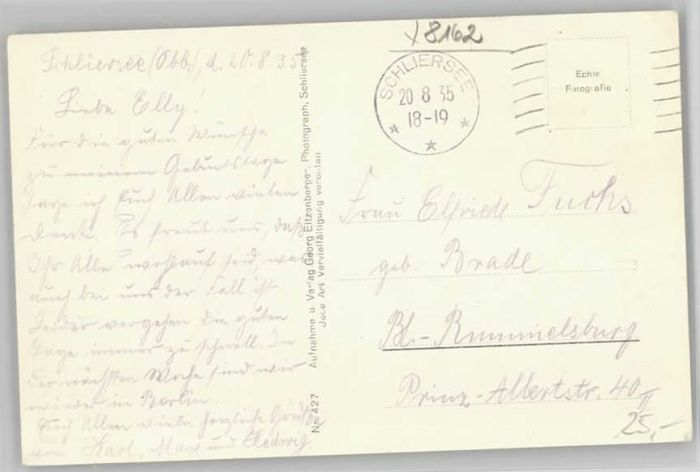 Schliersee (Obb), d. 20.8.35
Liebe Elly!
Für die guten Wünsche
zu meinem Geburtstage
sage ich Euch Allen vielen
Dank. Es freut uns, daß
Ihr Alle wohlauf seid, was
auch bei uns der Fall ist
Leider vergehen die guten
Tage immer zu schnell. In
der nächsten Woche sind wir
wieder in Berlin.
Euch Allen viele herzliche Grüße
von Karl, und Hedwig.
Nr. 427 Aufnahme u. Verlag Georg Eitzenberger, Photograph, Schliersee
Jede Art Vervielfältigung verboten
8162
SCHLIERSEE
20 8 35
18-19
Echte
Fotografie
Frau Elfriede Fuchs
geb. Brade
Bl.-Rummelsburg
Prinz-Albertstr. 40 II
25,-